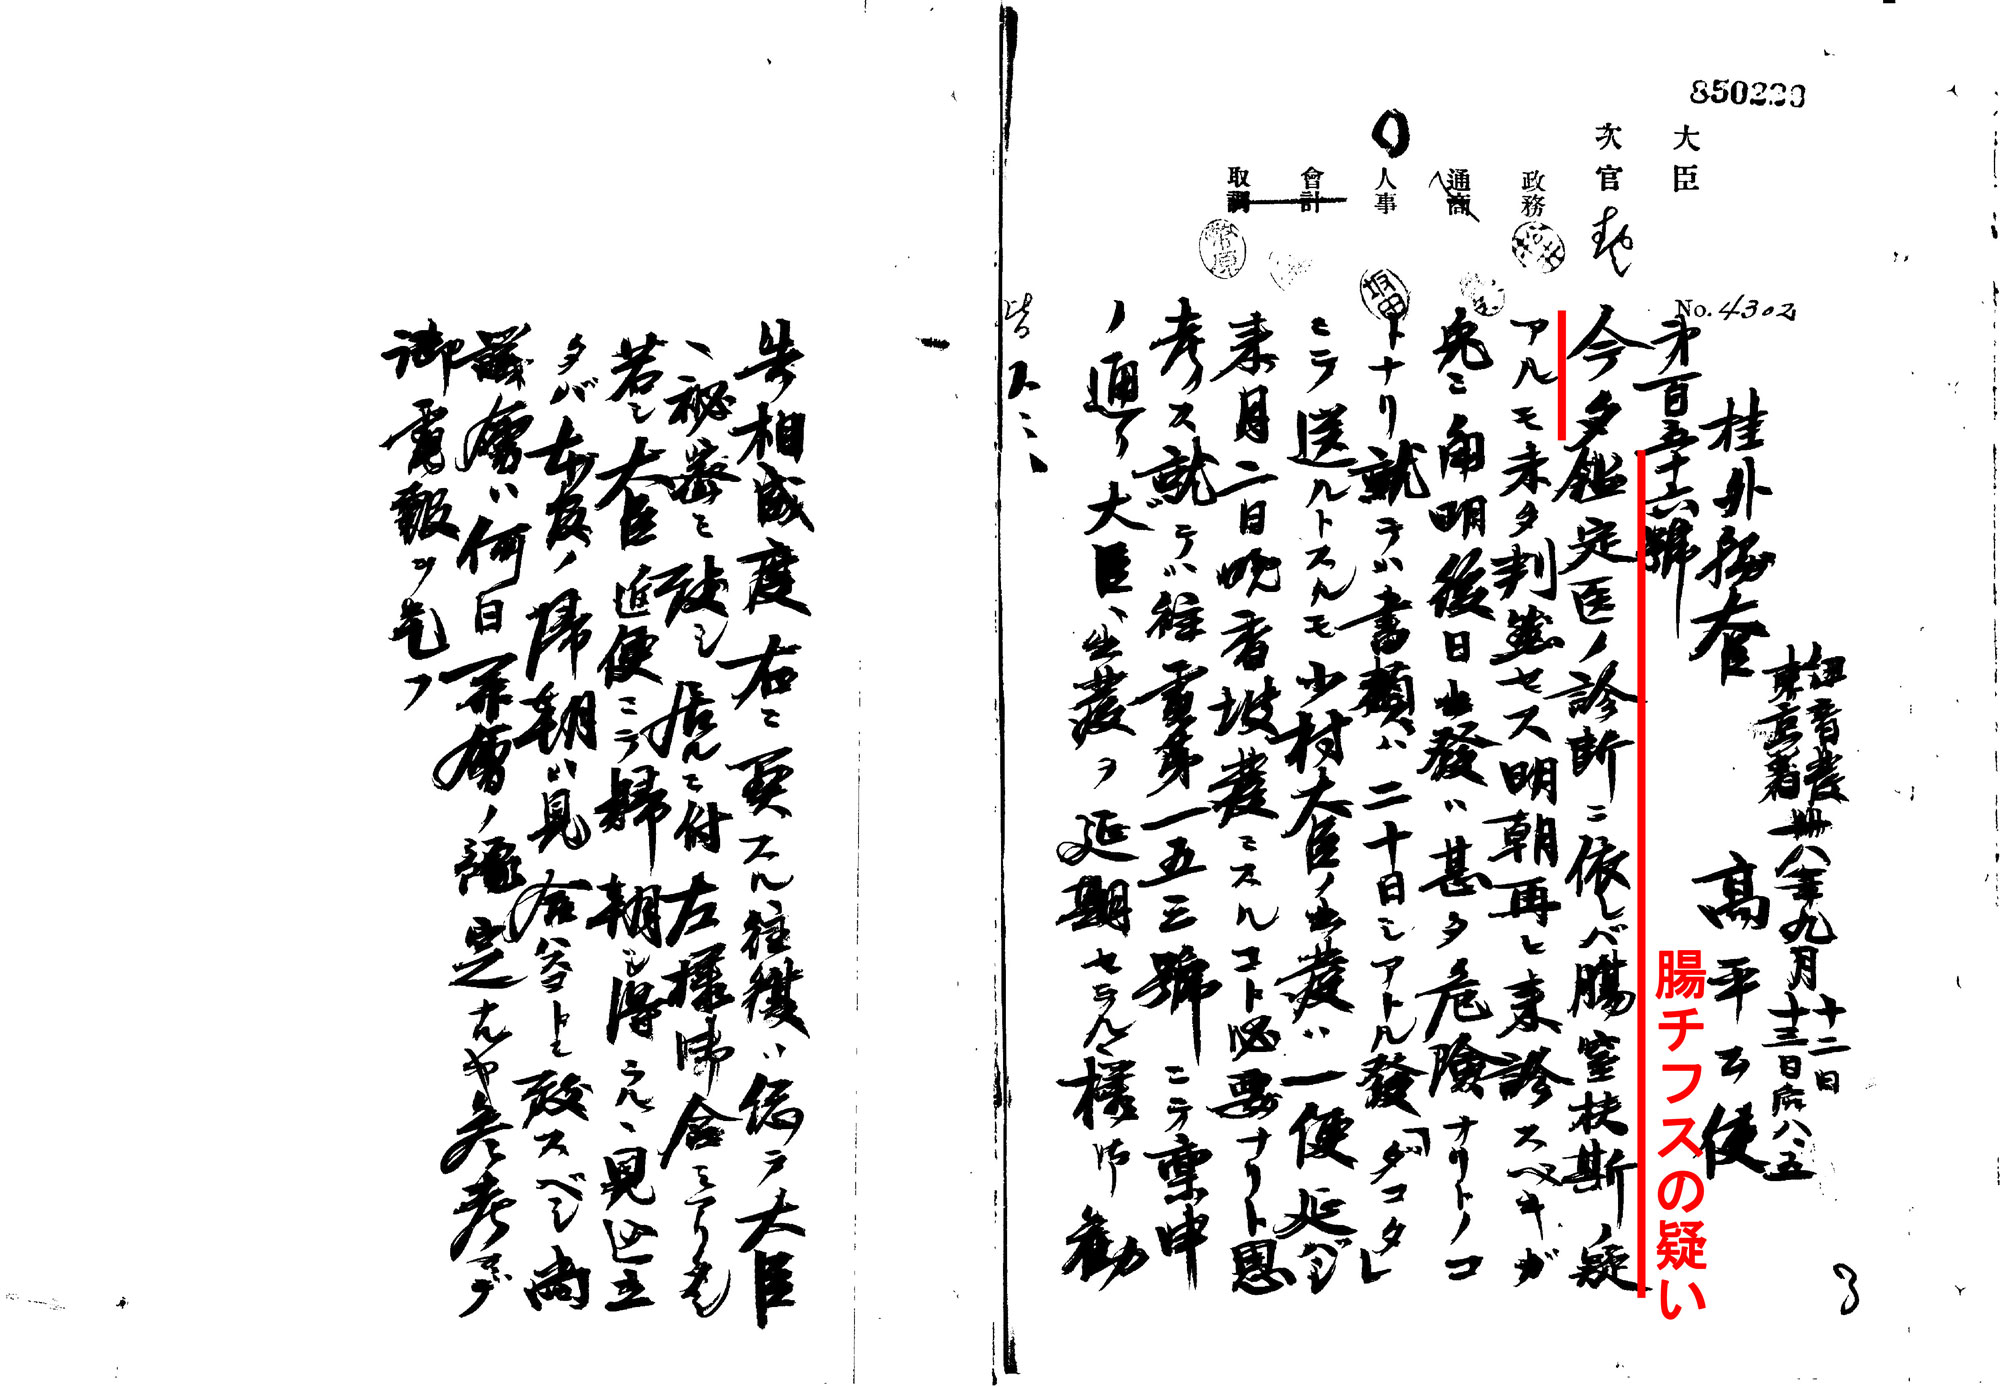 850223
大臣
次官
政務
通商
人事
會計
取調
坂田
No. 4302
紐育發 卅八年九月十二日
東京着 十三日后八、五
桂外務大臣
高平公使
第百五十六號
今夕鑑定医ノ診断ニ依レバ腸窒扶斯ノ疑
アルモ未タ判然セス明朝再ヒ来診スベキガ
兎ニ角明後日出發ハ甚タ危険ナリトノコ
トナリ就テハ書類ハ二十日シアトル發「ダコタ」
ニテ送ルトスルモ小村大臣ノ出發ハ一便延ジ
来月二日晩香坡發ニスルコト必要ナリト思
考ス就テハ往電第一五三號ニテ稟申
ノ通リ大臣ヘ出發ヲ延期セラルヽ様御勧
告相成度右ニ関スル往復ハ総テ大臣
ヘ秘密ニ致シ居ルニ付左様御含ミアリタシ
若シ大臣進便ニテ歸朝シ得ラルヽ見込立
タバ本官ノ帰朝ハ見合
スベシ尚
議會ハ何日開會ノ豫定ナルヤ参考マデ
御電報ヲ乞フ
腸チフスの疑い
3